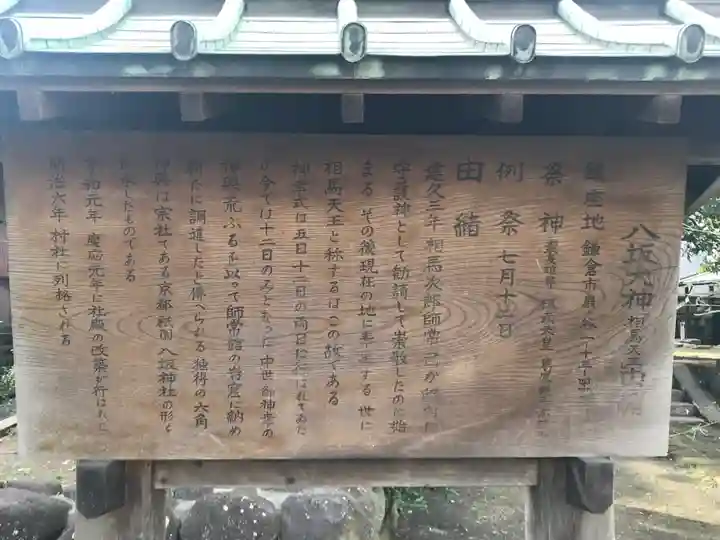 八坂大神 相馬天王由緒
鎮座地 鎌倉市扇ヶ谷一丁目
祭神 素戔雄尊 桓武天皇
例祭 七月十二日
由緒
建久三年相馬次郎師常 己が邸内
守護神として勧請して崇敬したのに始
まる その後現在の地に奉遷する 世に
相馬天王と称するはこの故である
神幸式は五日十二日の両日に行はれてゐた
が今では十二日のみとなった 中世 御神幸の
神輿荒ぶるを以って師常館の岩窟に納め
新たに調進したと傳へられる 独得の六角
神輿は宗社である京都祇園八坂神社の形を
したものである
享和元年 慶應元年に社殿の改築が行はれた
明治六年 村社に列格される